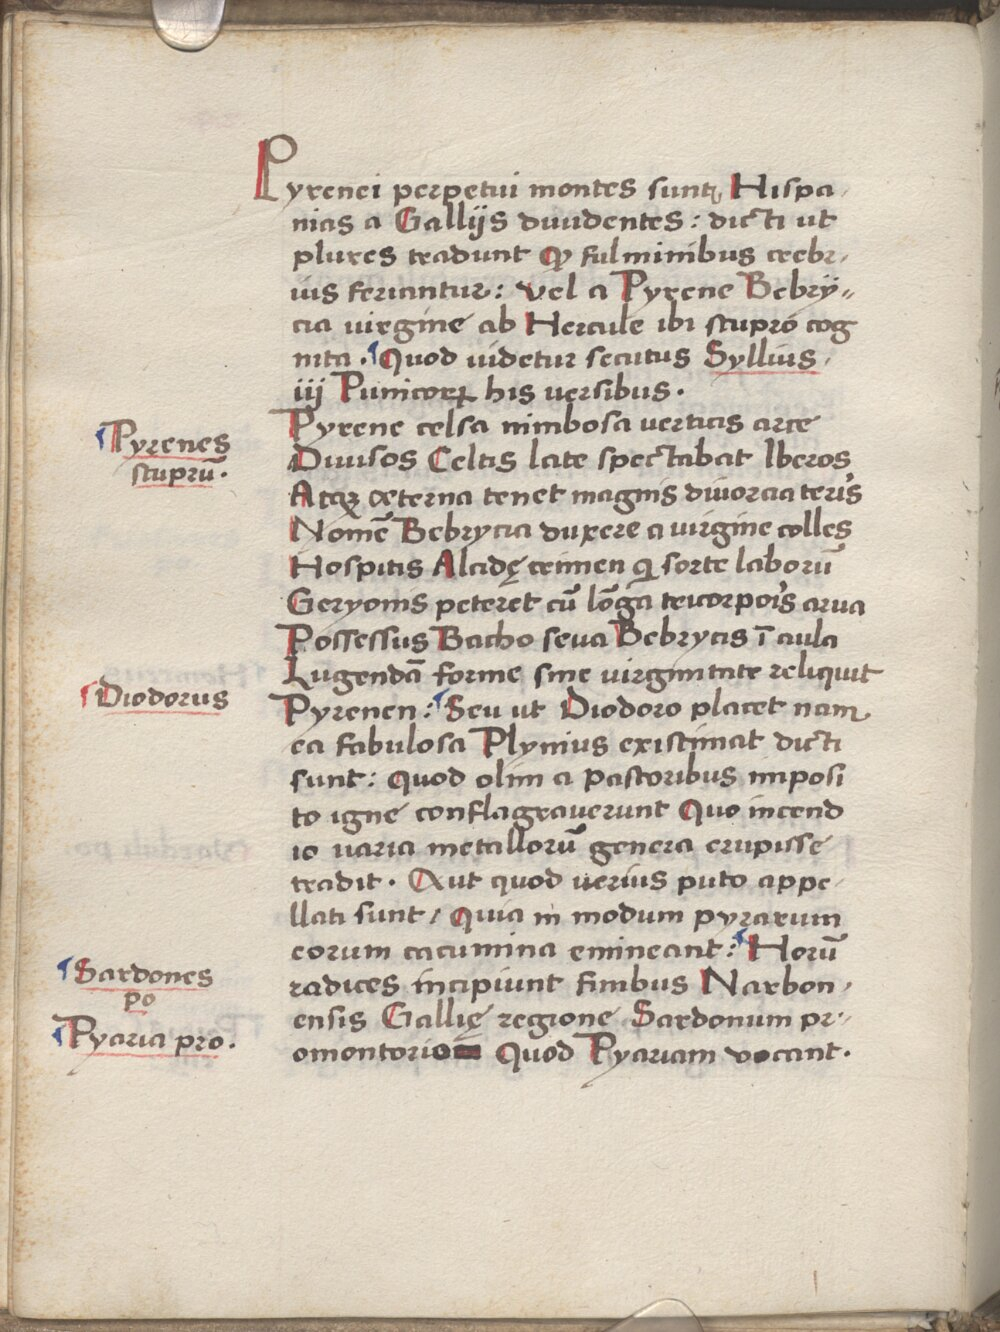 Pyrenei perpetui montes sunt, Hispa-
nias a Gallijs diuidentes: dicti ut
plures tradunt Ꙙ fulminibus crebr-
ius feriantur: vel a Pyrene Bebrÿ-
cia uirgine ab Hercule ibi stupro cog
nita. Quod uidetur secutus Syllius,
iij Punicoꝝ his uersibus.
Pyrene celsa nimbosa uerticis arce
Diuisos Celtis late spectabat Iberos
Atqꝫ œterna tenet magnis diuorcia teris
Nomē Bebrycia duxere a uirgine colles
Hospitis Alcidę crimen ꝗ sorte laborū
Geryonis peteret cū lōga tricorpoīs arua
Possessus Bacho seua Bebrycis ī aula
Lugendā forme sine uirginitate reliquit
Pyrenen: Seu ut Diodoro placet nam
ea fabulosa Plynius existimat dicti
sunt: quod olim a pastoribus imposi
to igne conflagrauerunt Quo incend
io uaria metallorū genera erupisse
tradit. Aut quod uerius puto appe-
llati sunt, Quia in modum pyrarum
eorum cacumina emineant: Horū
radices incipiunt finibus Narbon-
ensis Gallię regione Sardonum pr-
omontorio Quod Pyariam vocant.
Pyrenes
stuprū.
Diodorus
Sardones
po
Pyaria pro.